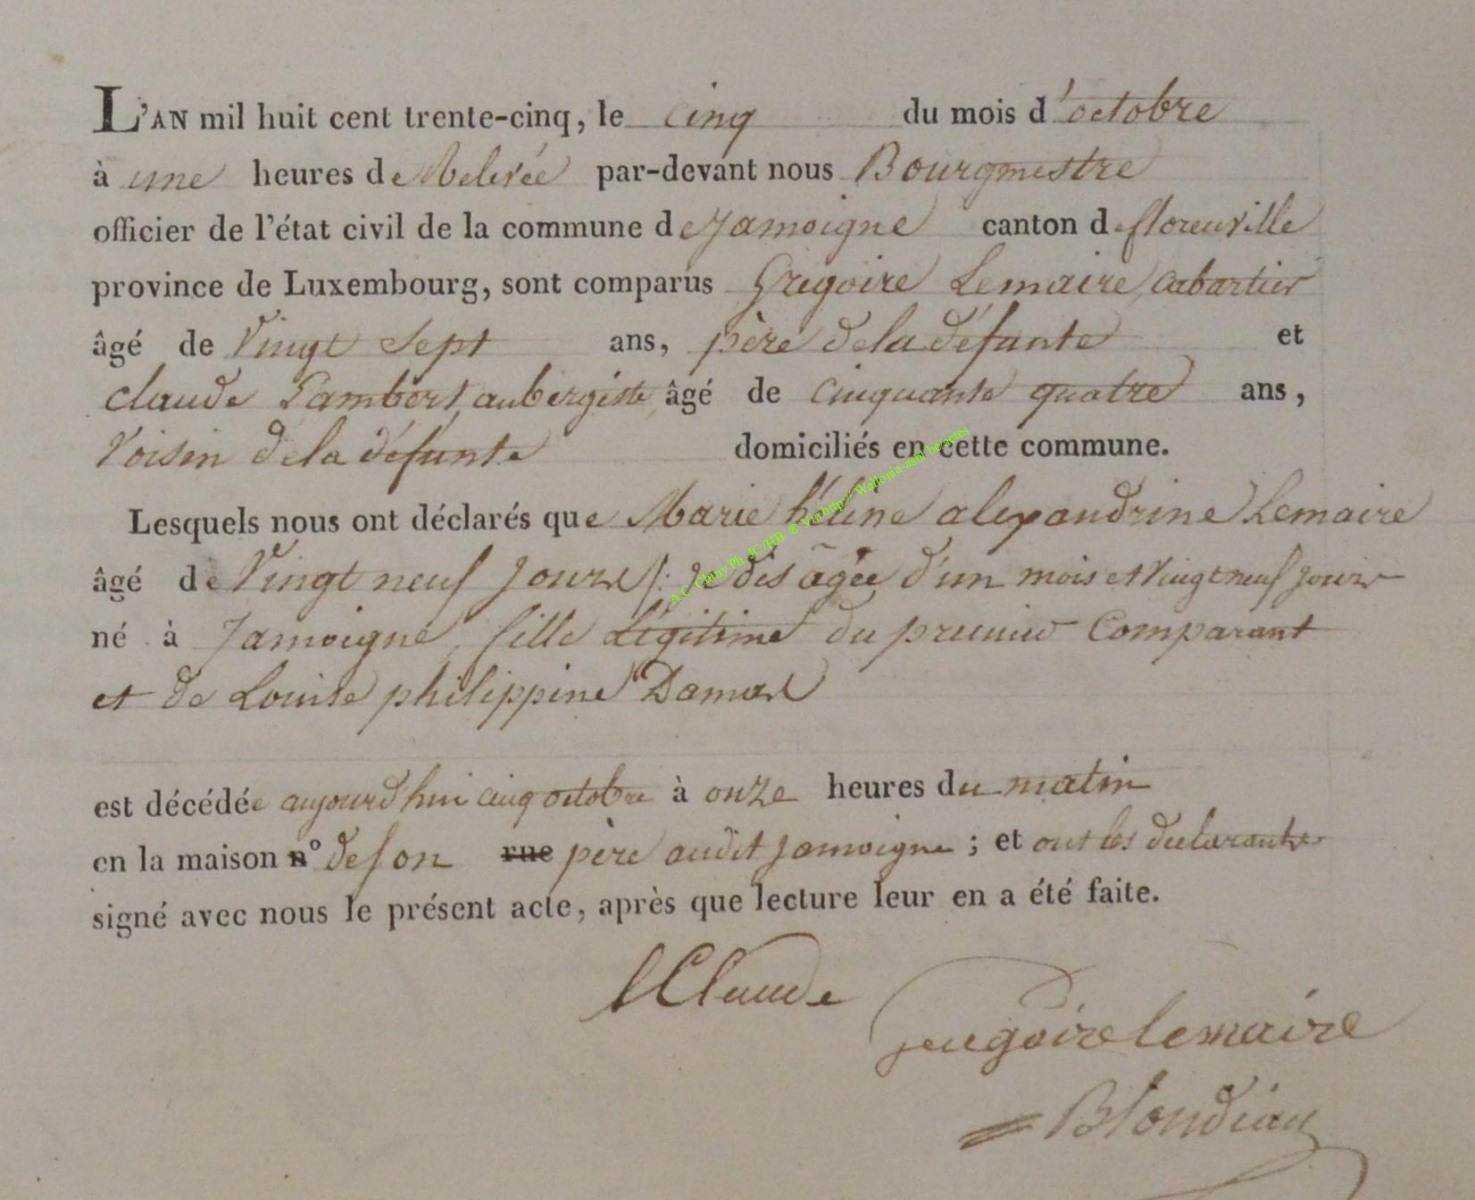 L'AN mil huit cent trente-cinq, le cinq du mois d'octobre
à une heures de Relevée par-devant nous Bourgmestre
officier de l'état civil de la commune de Jamoigne canton de florenville
province de Luxembourg, sont comparus Grégoire Lemaire, cabartier
âgé de Vingt Sept ans, père de la défunte et
claude Lambert, aubergiste, âgé de cinquante quatre ans,
Voisin de la défunte domiciliés en cette commune.
Lesquels nous ont déclarés que Marie hélène alexandrine Lemaire
âgé de Vingt neuf Jours /: Je dis âgée d'un mois et vingt neuf jours
né à Jamoigne, fille Légitime du premier Comparant
et de Louise philippine
est décédée aujourd'hui cinq octobre à onze heures du matin
en la maison n° de son rue père audit jamoigne ; et ont les déclarants
signé avec nous le présent acte, après que lecture leur en a été faite.
lClaude
gregoire lemaire
Blondiau